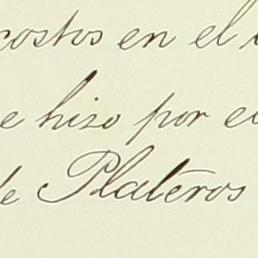 costos en el
e hizo por el
de Plateros